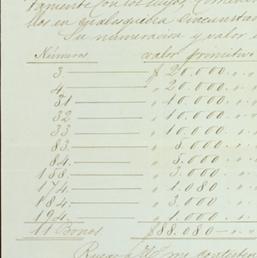 son los
en cualesquiera circunstan
Su numeracion y valor
Números valor primitivo
3 $ 20.000. " "
4 " 20.000. " "
31 " 10.000 " "
32 " 10.000 " "
33 " 10.000. " "
83 " 5.000 " "
84 " 5.000 " "
158 " 3.000 " "
174 " 1.080 " "
184 " 3.000 " "
194 " 1.000 " "
11 Bonos $88.080 " "